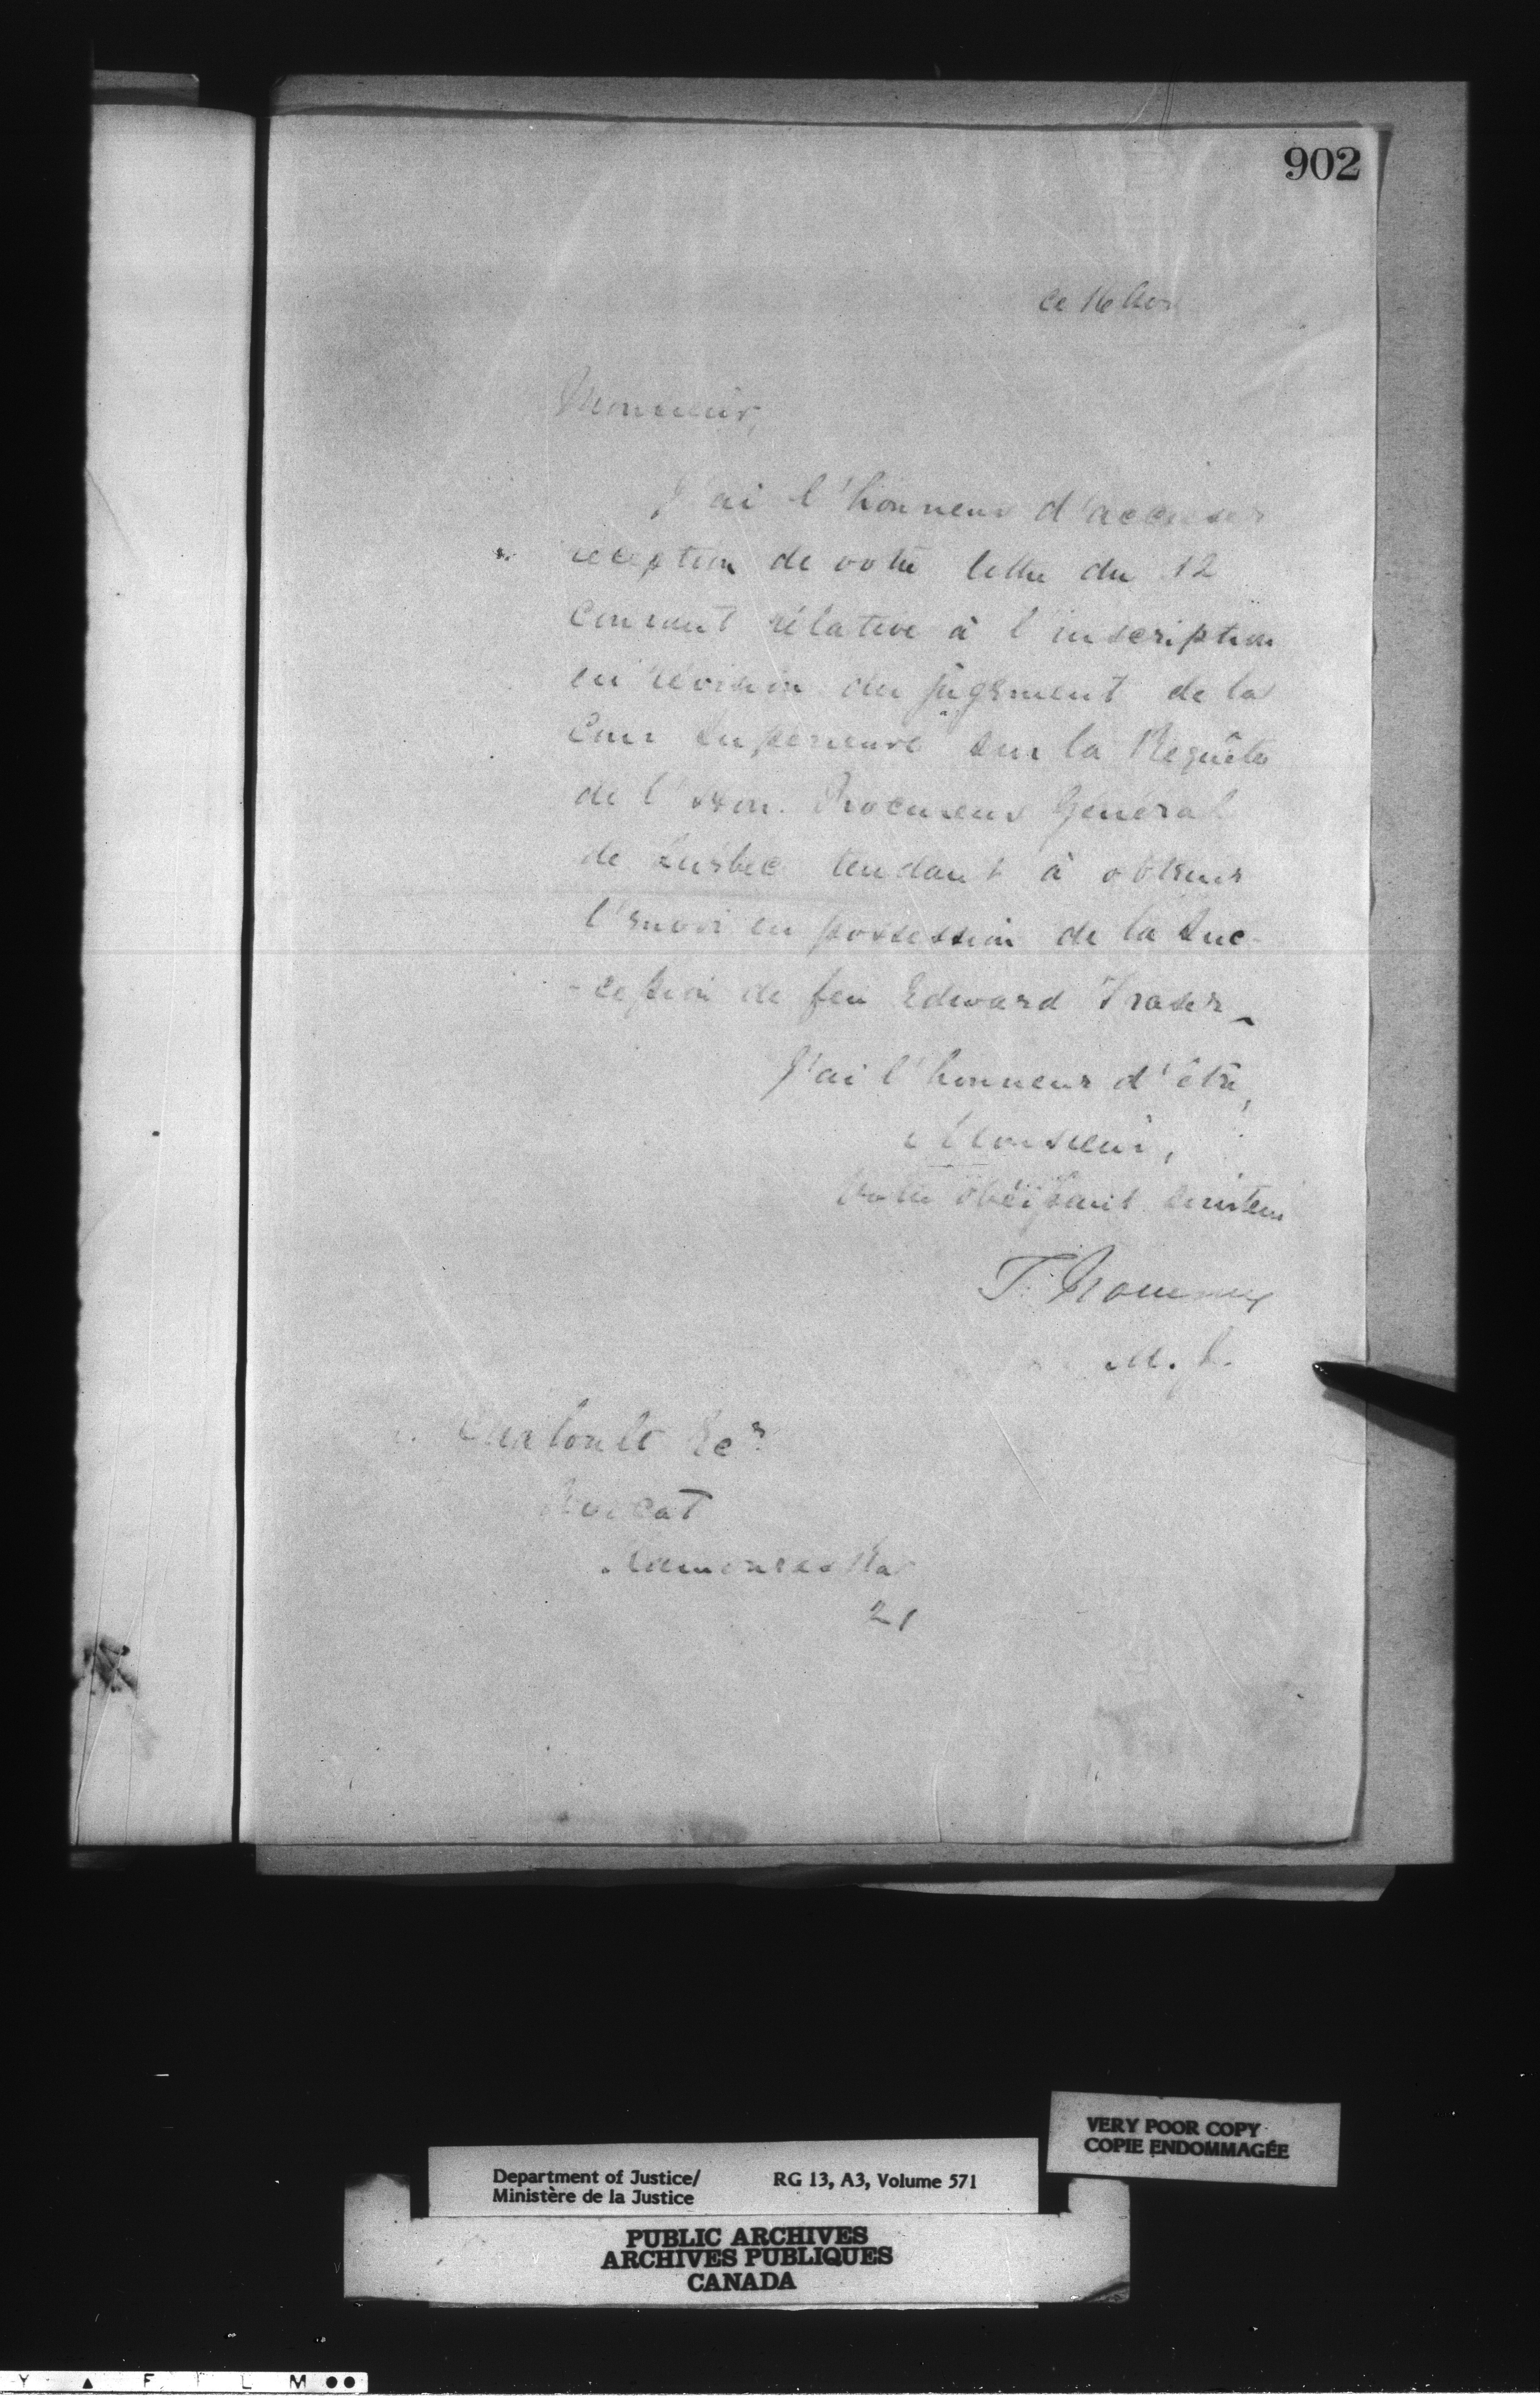 902
ce 16 Avr
Monsieur,
J'ai l'honneur d'accuser
réception de votre lettre du 12
courant rélative à l'inscription
en révision du jugement de la
Cour Supérieure sur la Requête
de l'Hon. Procureur Général
de Québec tendant à obtenir
l'envoi en possession de la Suc-
-cession de feu Edward Fraser
J'ai l'honneur d'être,
Monsieur,
Votre obéissant serviteur
T. Fournier
M. J.
Taschereau Ecr
Avocat
Kamouraska
21
VERY POOR COPY
COPIE ENDOMMAGÉE
Department of Justice/ RG 13, A3, Volume 571
Ministère de la Justice
PUBLIC ARCHIVES
ARCHIVES PUBLIQUES
CANADA
Y F I L M